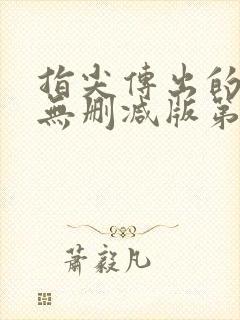 指尖傳出的
無刪減版第
蕭毅凡